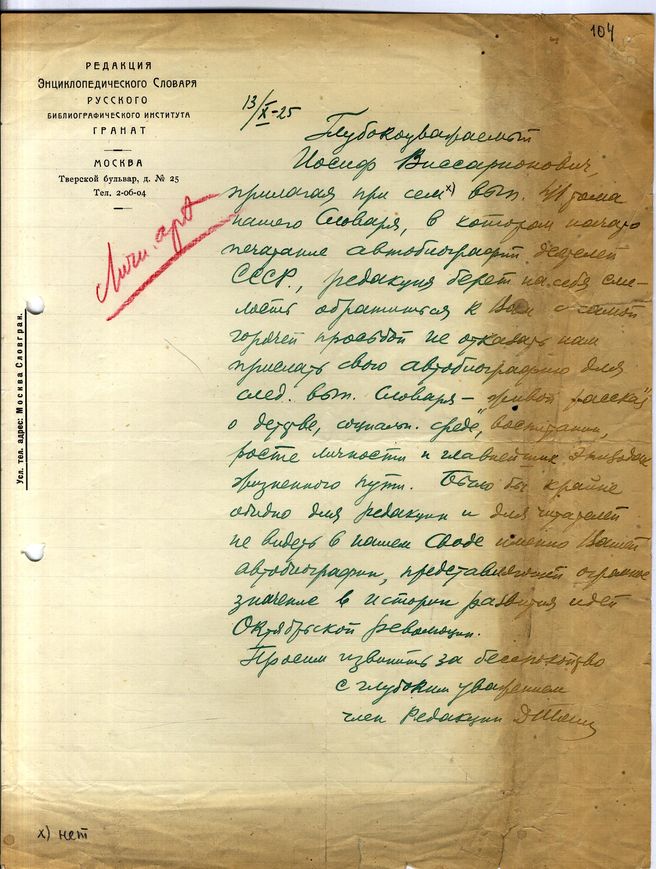 104
РЕДАКЦИЯ
ЭНЦИКЛОПЕДИЧЕСКОГО СЛОВАРЯ
РУССКОГО
БИБЛИОГРАФИЧЕСКОГО ИНСТИТУТА
ГРАНАТ
МОСКВА
Тверской бульвар, д. № 25
Тел. 2-06-04
Личн. арх
Усл. тел. адрес: Москва Словгран.
13/X-25
Глубокоуважаемый
Иосиф Виссарионович,
прилагая при сем х) вып. 41 тома
нашего Словаря, в котором начато
печатание автобиографий деятелей
СССР, редакция берет на себя сме-
лость обратиться к Вам с самой
горячей просьбой не отказать нам
прислать свою автобиографию для
след. вып. Словаря – „живой рассказ"
о детстве, социальн. среде, воспитании,
росте личности и главнейших эпизодах
жизненного пути. Было бы крайне
обидно для редакции и для читателей
не видеть в нашем Своде именно Вашей
автобиографии, представляющей огромное
значение в истории развития идей
Октябрьской революции.
Просим извинить за беспокойство
с глубоким уважением
член Редакции
х) нет